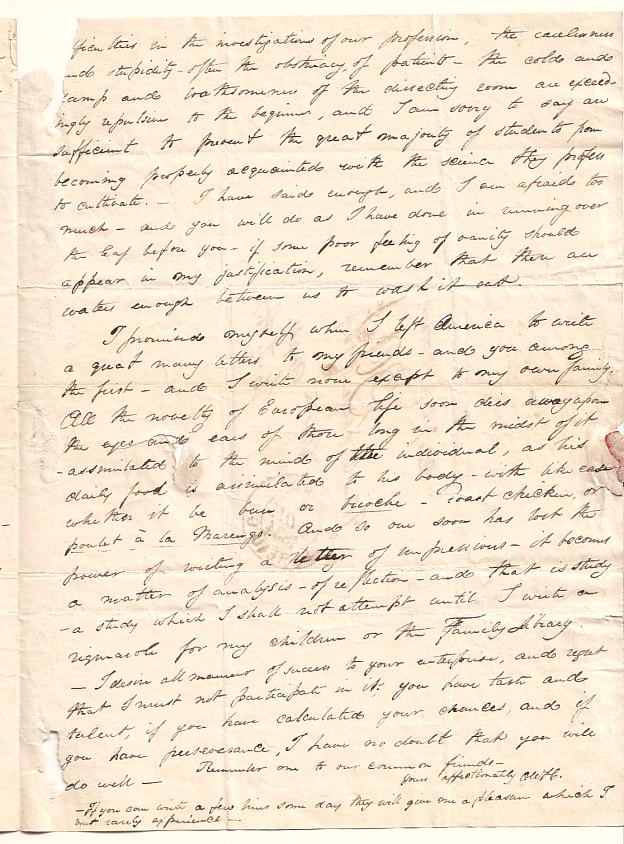 fficulties in the investigations of our profession, the carelessness
and stupidity - often the obstinacy, of patients - the cold and
damp and loathsomeness of the dissecting room are exceed-
ingly repulsive to the beginner, and I am sorry to say are
sufficient to prevent the great majority of students from
becoming properly acquainted with the science they profess
to cultivate. - I have said enough, and I am afraid too
much - and you will do as I have done in running over
the leaf before you - if some poor feeling of vanity should
appear in my justification, remember that there are
waters enough between us to wash it out.
I promised myself, when I left America to write
a great many letters to my friends - and you among
the first - and I write none except to my own family.
All the novelty of European life soon dies away upon
the eyes and ears of those long in the midst of it
- assimilated to the mind of the individual, as his
daily food is assimilated to his body - with like ease
whether it be bun or brioche - roast chicken, or
poulet à la Marengo. And so one soon has lost the
power of writing a letter of impressions - it becomes
a matter of analysis - of reflection - and that is study
- a study which I shall not attempt until I write a
rigmarole for my children or the Family Library.
- I desire all manner of success to your enterprise, and regret
that I must not participate in it. you have taste and
talent, if you have calculated your chances, and if
you have perseverance, I have no doubt that you will
do well - Remember me to our common friends -
yours affectionately
- If you can write a few lines some day they will give me a pleasure which I
but rarely experience -